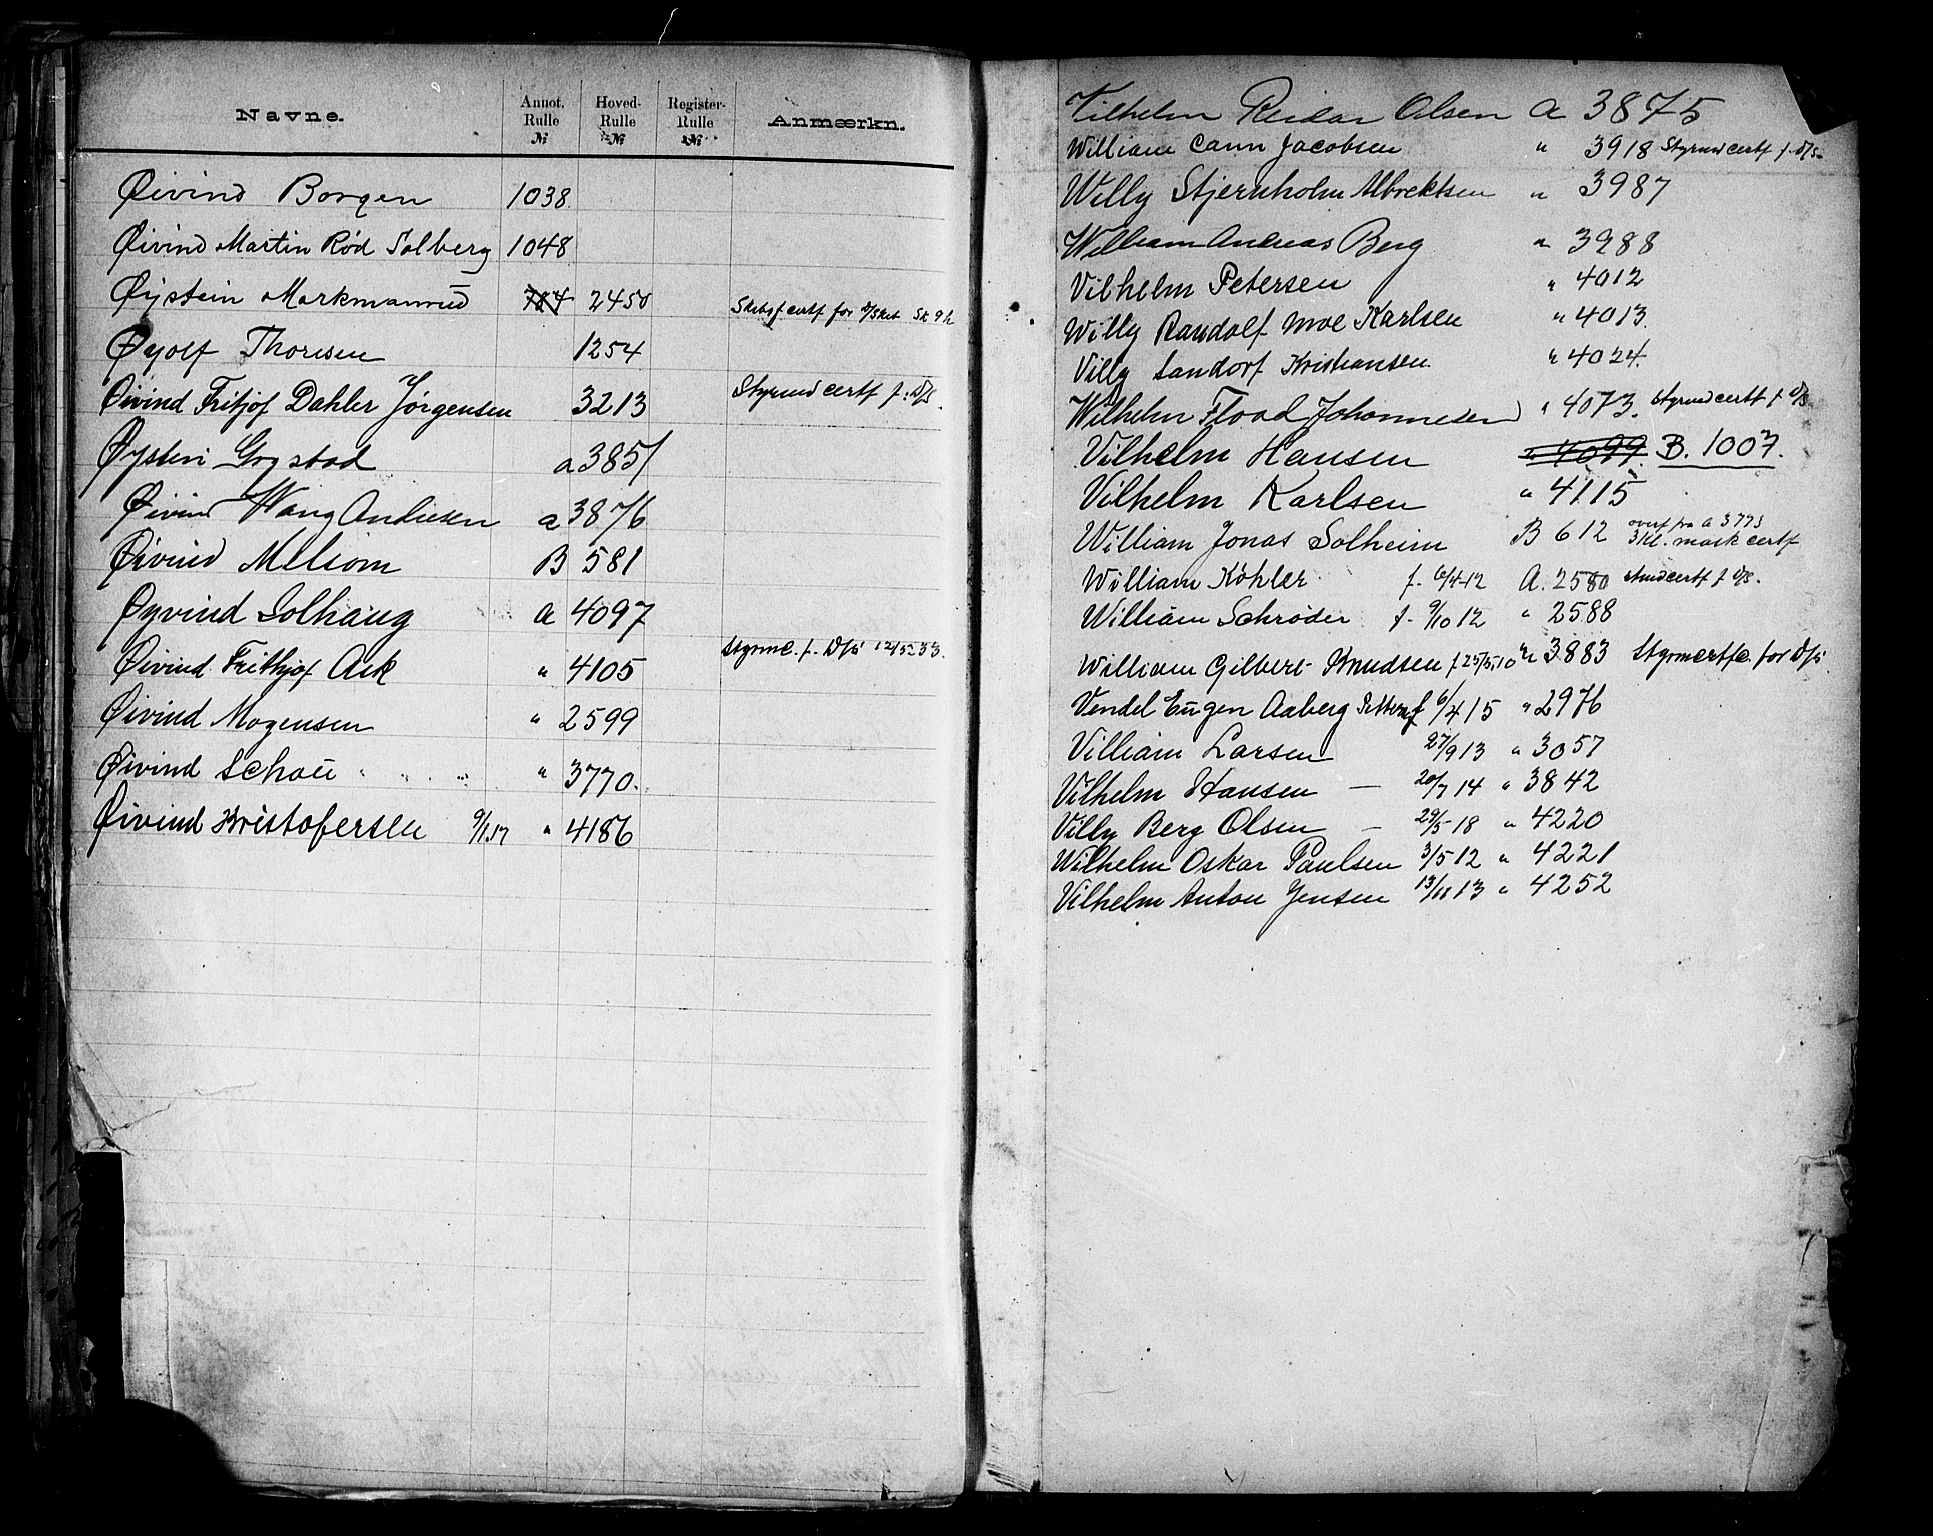 Navne. Annot. Rulle № Hoved- Rulle № Register- Rulle № Anmærkn.
Øivind Borgen 1038
Øivind Martin Rød Solberg 1048
Øistein Markmanrud 784 2450
Øyolf Thoresen 1254
Øivind Fritjof Dahler Jørgensen 3213 Styrmd certf f. D/S.
Øystein Grystad a 3851
Øivind Wang Andresen a 3876
Øivind Melsom B 581
Øyvind Solhaug a 4097
Øivind Frithjof Ask " 4105 Styrmc. f. D/S 12/5-33.
Øivind Mogensen " 2599
Øivind Schou " " " " 3770.
Øivind Kristofersen 9/1.17 " 4186
Vilhelm Reidar Olsen a 3875
William Cann Jacobsen " 3918 Styrmd certf f. D/S.
Willy Stjernholm Albrektsen " 3987
William Andreas Berg " 3988
Vilhelm Petersen " 4012
Willy Randolf Moe Karlsen " 4013.
Villy Landorf Kristiansen " 4024.
Wilhelm Flood Johannesen " 4073. Styrmd certf f D/S
Vilhelm Hansen " 4099. B. 1007.
Vilhelm Karlsen " 4115
William Jonas Solheim B 612 overf fra a 3773
3 kl. mask certf
William Köhler f. 6/4-12 A. 2580 stmd certf f D/S.
William Schrøder f. 9/10 12 " 2588
William Gilbert Knudsen f 25/5-10 " 3883 Styrmcertfc. for D/S
Vendel Eugen Aaberg f 6/4 15 " 2976
Villiam Larsen 27/9 13 " 3057
Vilhelm Hansen — 20/7 14 " 3842
Villy Berg Olsen — 29/5 18 " 4220
Wilhelm Oskar Paulsen 3/5 12 " 4221
Vilhelm Anton Jensen 13/11 13 " 4252